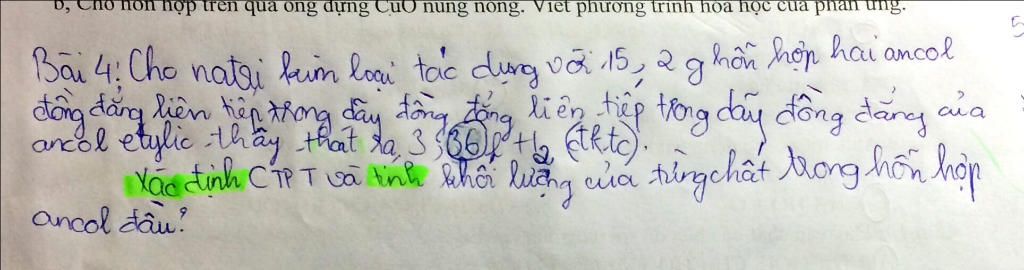 b, Cho hỗn hợp trên qua ống đựng CuO nung nóng. Viết phương trình hóa học của phản ứng.
Bài 4: Cho natri kim loại tác dụng với 15,2 g hỗn hợp hai ancol
đồng đẳng liên tiếp trong dãy đồng đẳng liên tiếp trong dãy đồng đẳng của
ancol etylic thấy thoát ra 3,36 l H2 (đktc).
Xác định CTPT và tính khối lượng của từng chất trong hỗn hợp
ancol đầu?
5